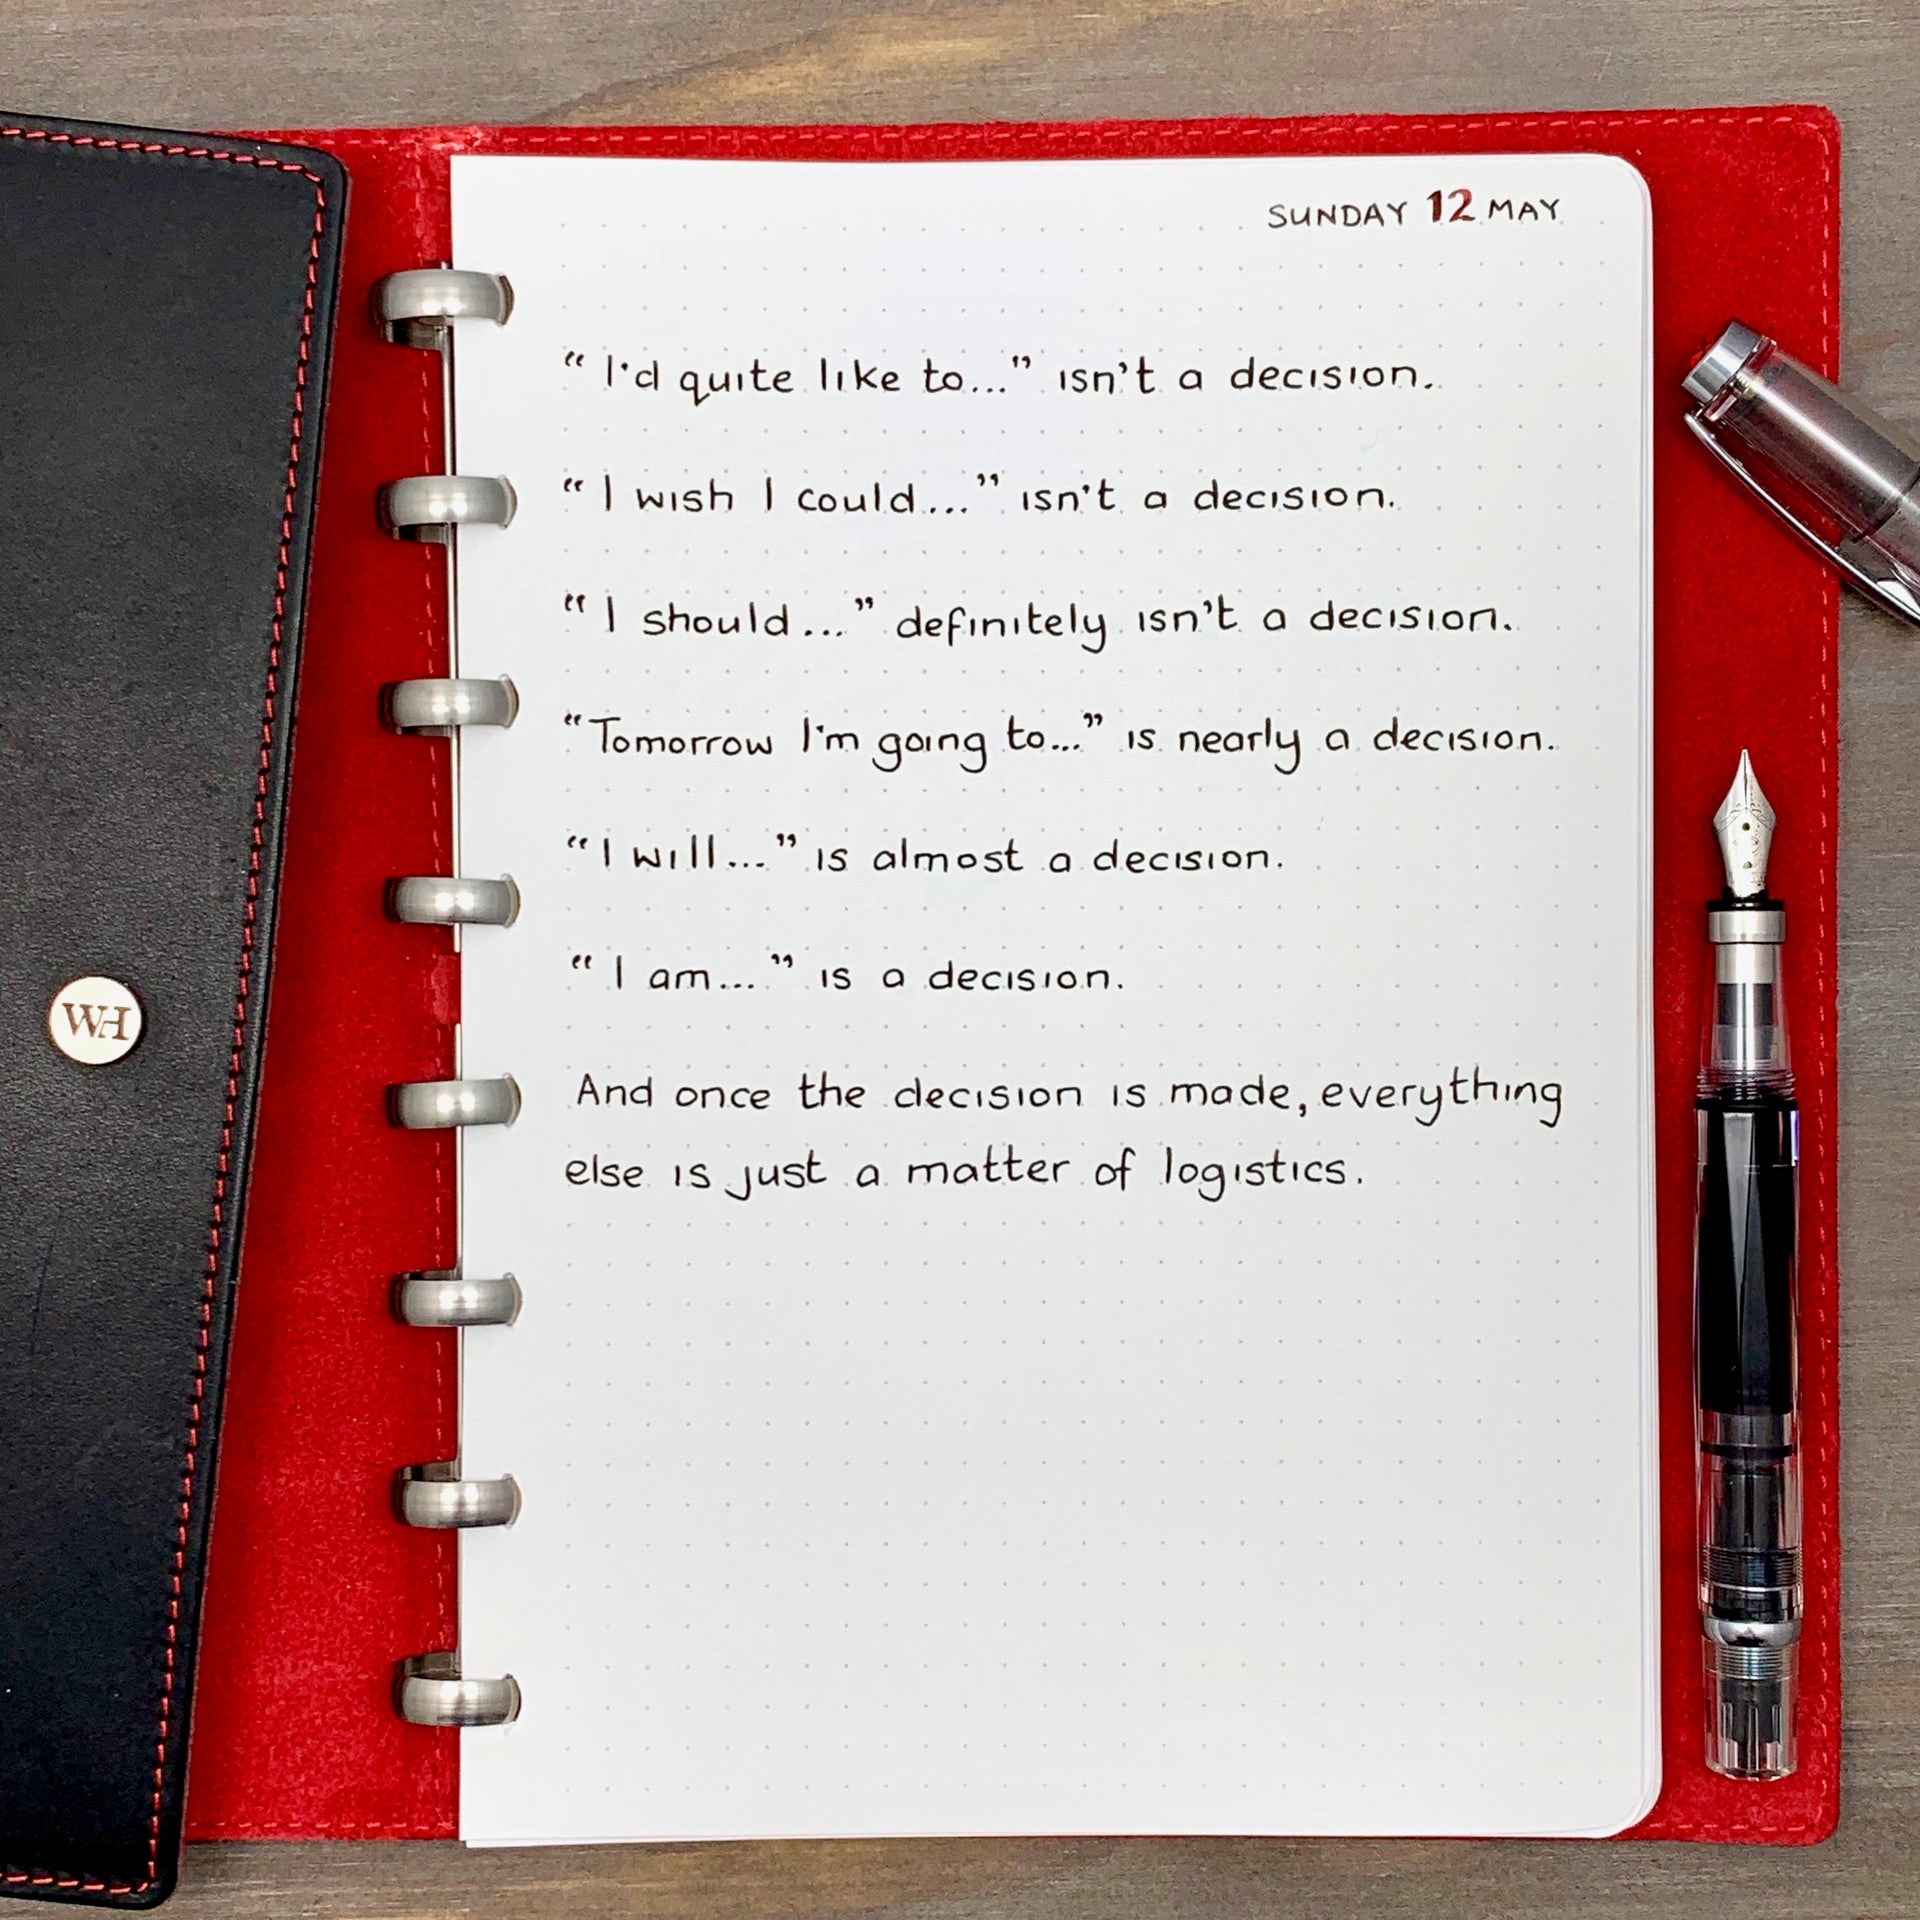 SUNDAY 12 MAY
“I'd quite like to...” isn't a decision.
“I wish I could...” isn't a decision.
“I should...” definitely isn't a decision.
“Tomorrow I'm going to...” is nearly a decision.
“I will...” is almost a decision.
“I am...” is a decision.
And once the decision is made, everything
else is just a matter of logistics.
WH